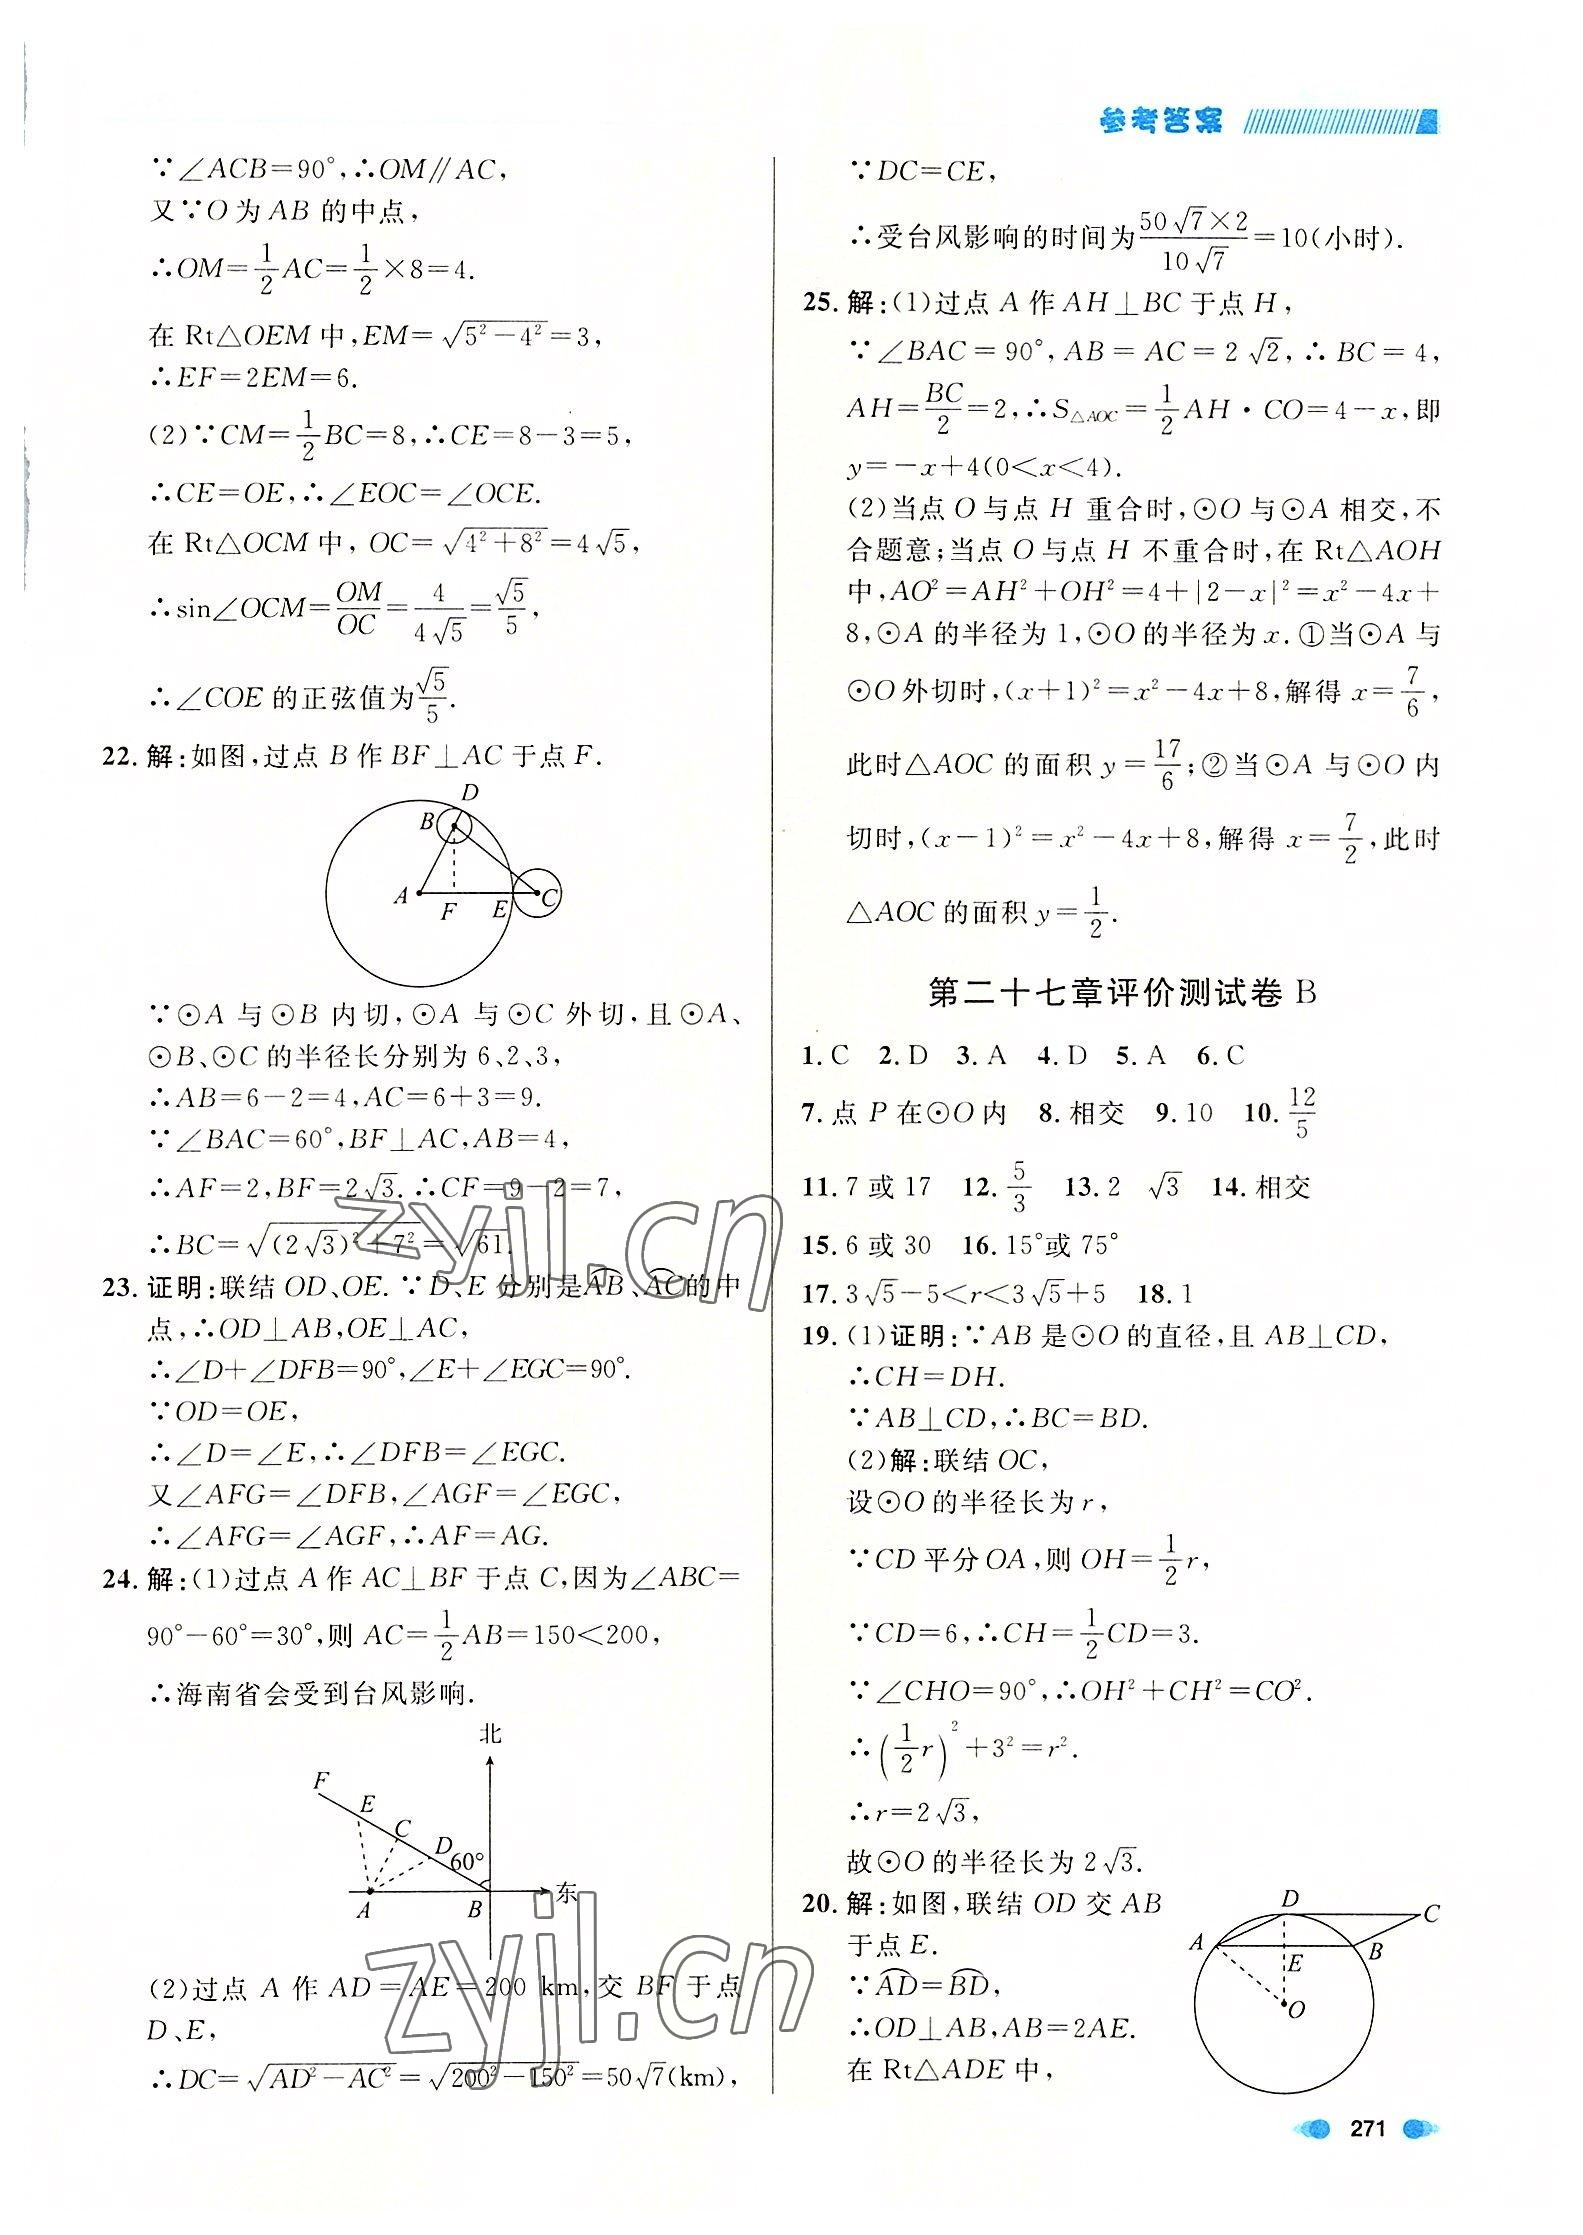 参考答案
∵∠ACB=90°,∴OM∥AC,
又∵O为AB的中点,
∴OM=1/2AC=1/2×8=4.
在Rt△OEM中,EM=√(5²-4²)=3,
∴EF=2EM=6.
(2)∵CM=1/2BC=8,∴CE=8-3=5,
∴CE=OE,∴∠EOC=∠OCE.
在Rt△OCM中,OC=√(4²+8²)=4√5,
∴sin∠OCM=OM/OC=4/(4√5)=√5/5,
∴∠COE的正弦值为√5/5.
22.解:如图,过点B作BF⊥AC于点F.
D
B
A
F
E
C
∵⊙A与⊙B内切,⊙A与⊙C外切,且⊙A、
⊙B、⊙C的半径长分别为6、2、3,
∴AB=6-2=4,AC=6+3=9.
∵∠BAC=60°,BF⊥AC,AB=4,
∴AF=2,BF=2√3.∴CF=9-2=7,
∴BC=√((2√3)²+7²)=√61.
23.证明:联结OD、OE.∵D、E分别是⌒AB、⌒AC的中
点,∴OD⊥AB,OE⊥AC,
∴∠D+∠DFB=90°,∠E+∠EGC=90°.
∵OD=OE,
∴∠D=∠E,∴∠DFB=∠EGC.
又∠AFG=∠DFB,∠AGF=∠EGC,
∴∠AFG=∠AGF,∴AF=AG.
24.解:(1)过点A作AC⊥BF于点C,因为∠ABC=
90°-60°=30°,则AC=1/2AB=150<200,
∴海南省会受到台风影响.
北
F
E
C
D
60°
A
B
东
(2)过点A作AD=AE=200 km,交BF于点
D、E,
∴DC=√(AD²-AC²)=√(200²-150²)=50√7(km),
∵DC=CE,
∴受台风影响的时间为(50√7×2)/(10√7)=10(小时).
25.解:(1)过点A作AH⊥BC于点H,
∵∠BAC=90°,AB=AC=2√2,∴BC=4,
AH=BC/2=2,∴S△AOC=1/2AH·CO=4-x,即
y=-x+4(0<x<4).
(2)当点O与点H重合时,⊙O与⊙A相交,不
合题意;当点O与点H不重合时,在Rt△AOH
中,AO²=AH²+OH²=4+|2-x|²=x²-4x+
8,⊙A的半径为1,⊙O的半径为x.①当⊙A与
⊙O外切时,(x+1)²=x²-4x+8,解得x=7/6,
此时△AOC的面积y=17/6;②当⊙A与⊙O内
切时,(x-1)²=x²-4x+8,解得x=7/2,此时
△AOC的面积y=1/2.
第二十七章评价测试卷B
1.C 2.D 3.A 4.D 5.A 6.C
7.点P在⊙O内 8.相交 9.10 10.12/5
11.7或17 12.5/3 13.2 √3 14.相交
15.6或30 16.15°或75°
17.3√5-5<r<3√5+5 18.1
19.(1)证明:∵AB是⊙O的直径,且AB⊥CD,
∴CH=DH.
∵AB⊥CD,∴BC=BD.
(2)解:联结OC,
设⊙O的半径长为r,
∵CD平分OA,则OH=1/2r,
∵CD=6,∴CH=1/2CD=3.
∵∠CHO=90°,∴OH²+CH²=CO².
∴(1/2r)²+3²=r².
∴r=2√3,
故⊙O的半径长为2√3.
20.解:如图,联结OD交AB
于点E.
∵⌒AD=⌒BD,
∴OD⊥AB,AB=2AE.
在Rt△ADE中,
D
C
A
E
B
O
zyjl.cn
zyjl.cn
271